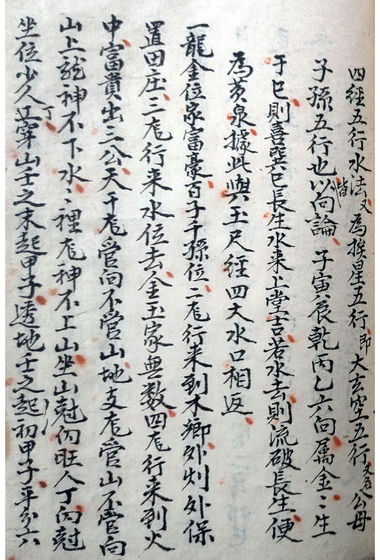 四經五行水法又為挨星五行即大玄空五行又名公母
子孫五行也皆以向論子寅辰乾丙乙六向属金金生
于巳則喜巽巳長生水來上堂吉若水去則流破長生便
為黃泉據此與玉尺經四大水口相返
一龍金位家富豪百子千孫位二龙行来到木鄉外州外保
置田庄三龙行来水位去金玉家無數四龙行来到火
中富貴出三公天干龙管向不管山地支龙管山不管向
山上龍神不下水水裡龙神不上山坐山尅向旺人丁向尅
坐位少人丁穿山壬之末起甲子透地壬之初起甲子平分六